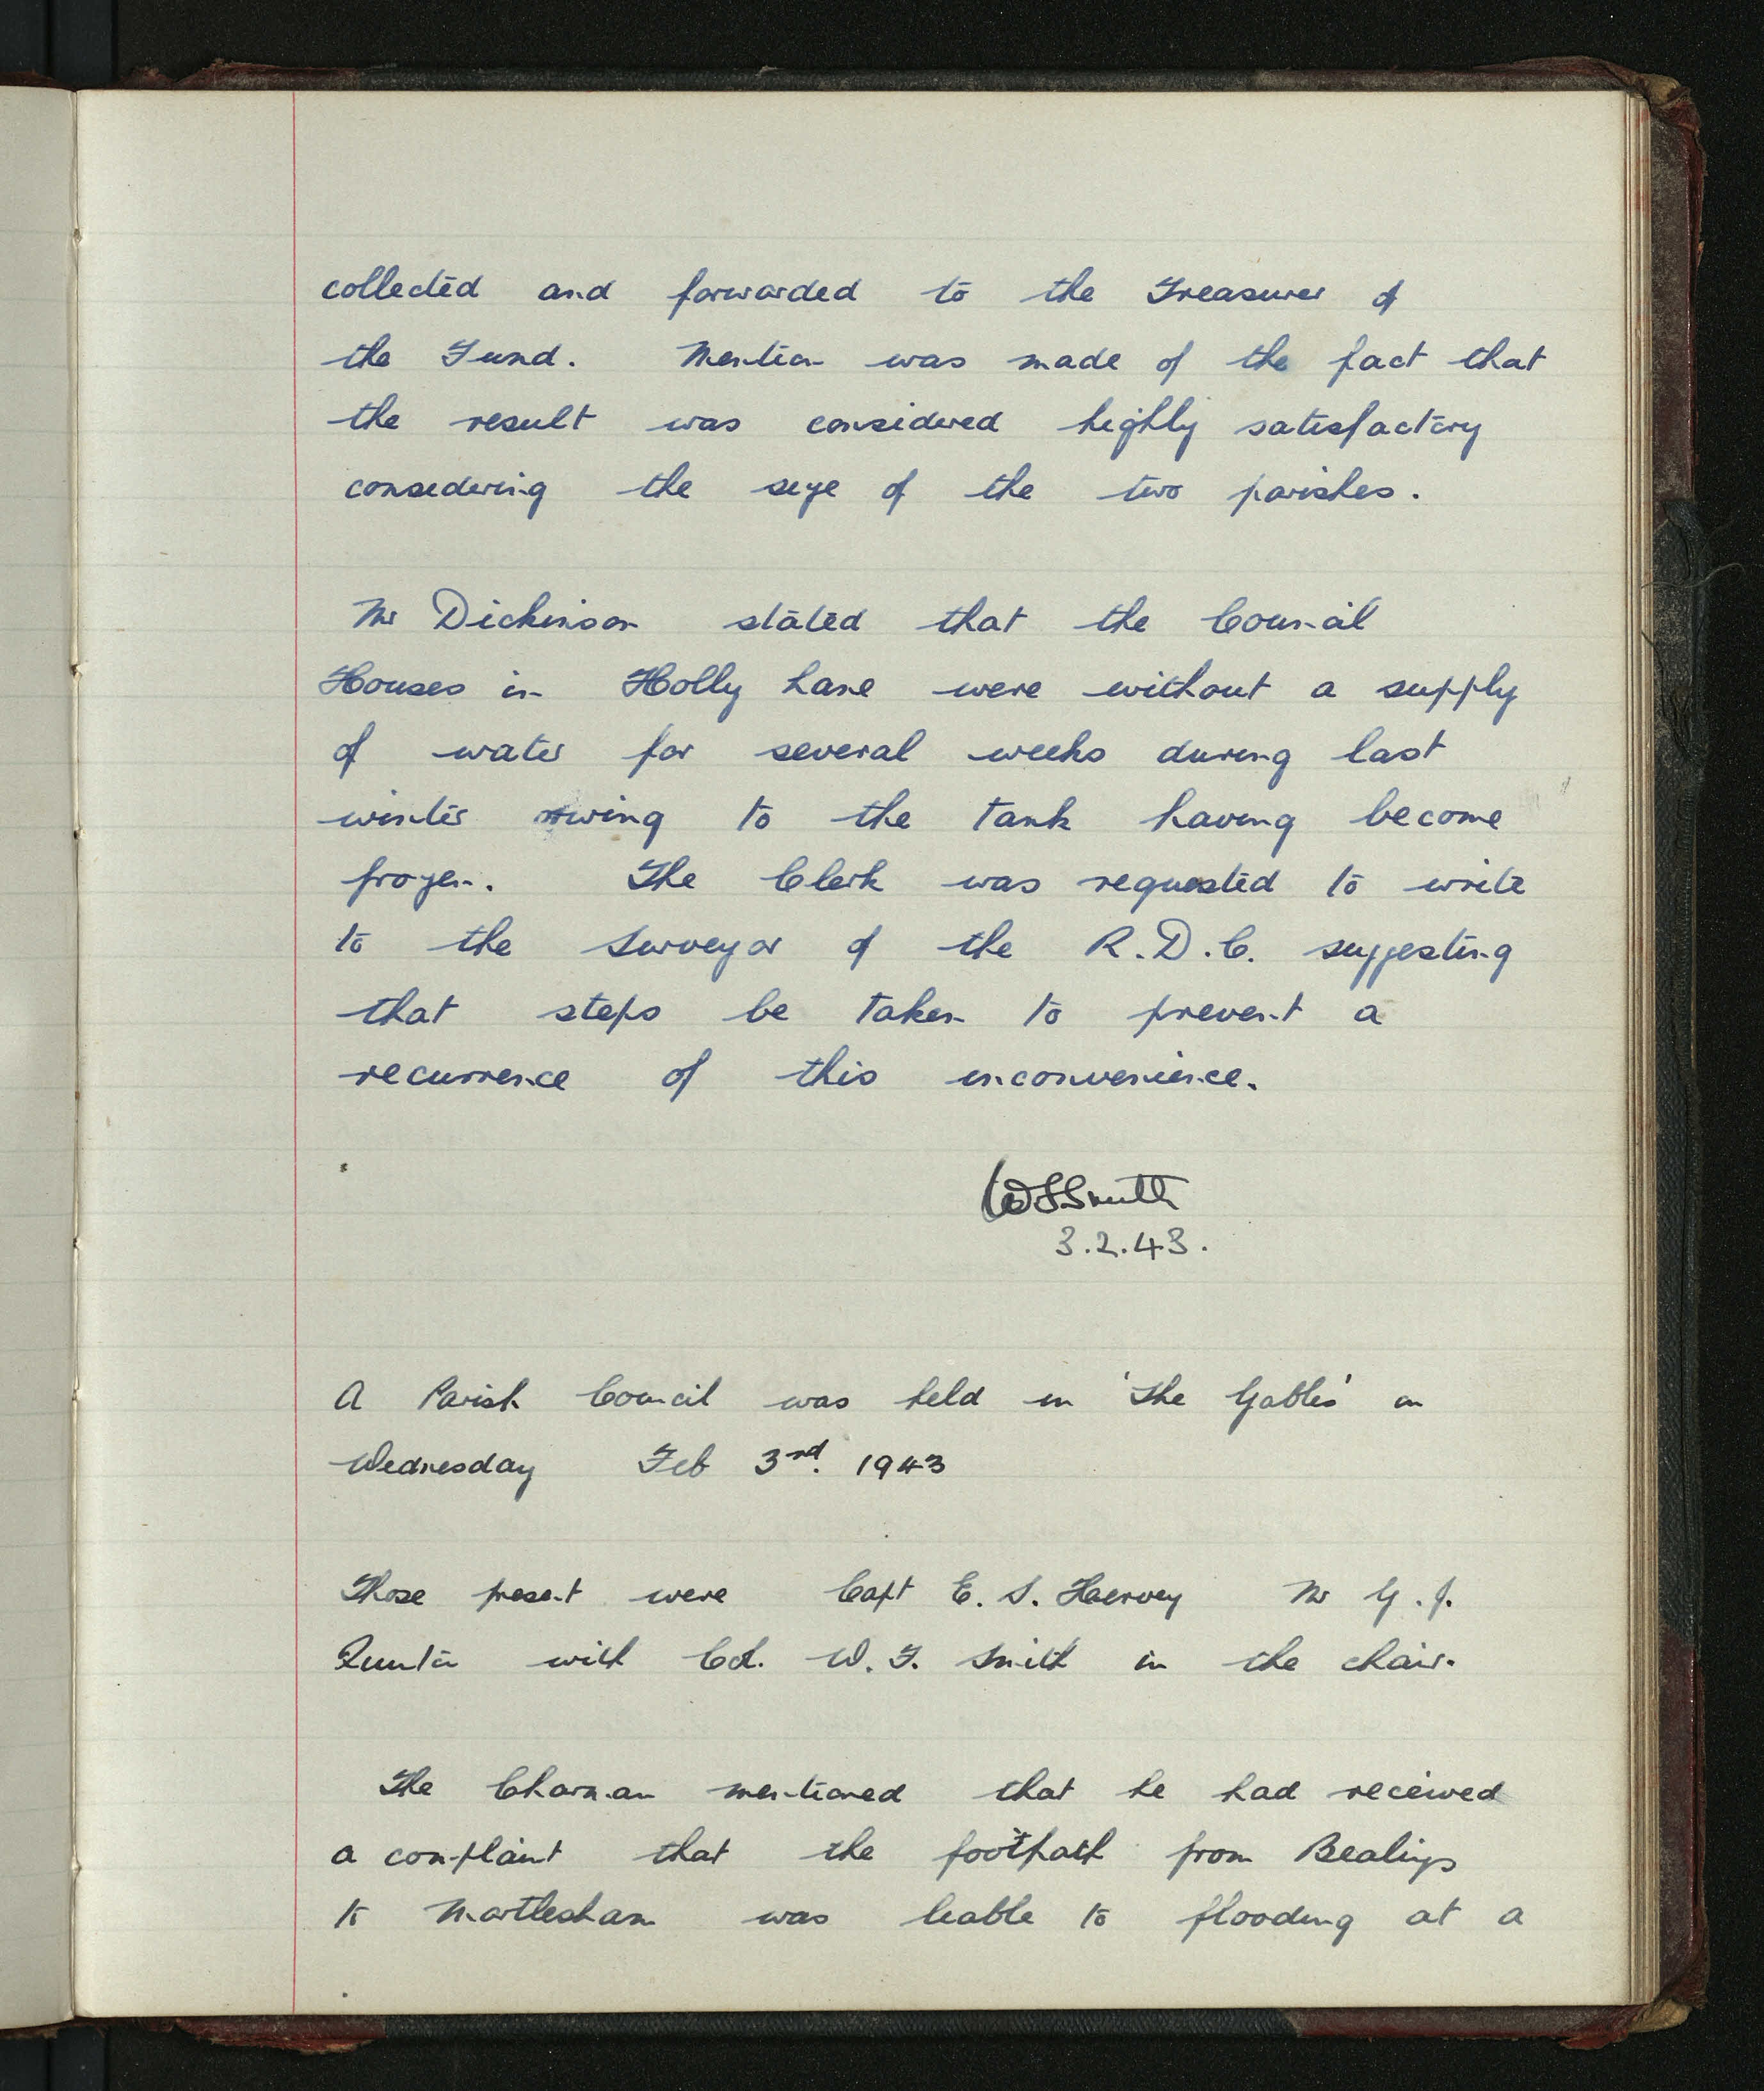 collected and forwarded to the Treasurer of
the Fund. Mention was made of the fact that
the result was considered highly satisfactory
considering the size of the two parishes.
Mr Dickinson stated that the Council
Houses in Holly Lane were without a supply
of water for several weeks during last
winter owing to the tank having become
frozen. The Clerk was requested to write
to the Surveyor of the R.D.C. suggesting
that steps be taken to prevent a
recurrence of this inconvenience.
WFSmith
3.2.43.
A Parish Council was held in 'The Gables' on
Wednesday Feb 3rd. 1943
Those present were Capt E. S. Harvey Mr G. J.
with Col. W. F. Smith in the chair.
The Chairman mentioned that he had received
a complaint that the footpath from Bealings
to Martlesham was liable to flooding at a